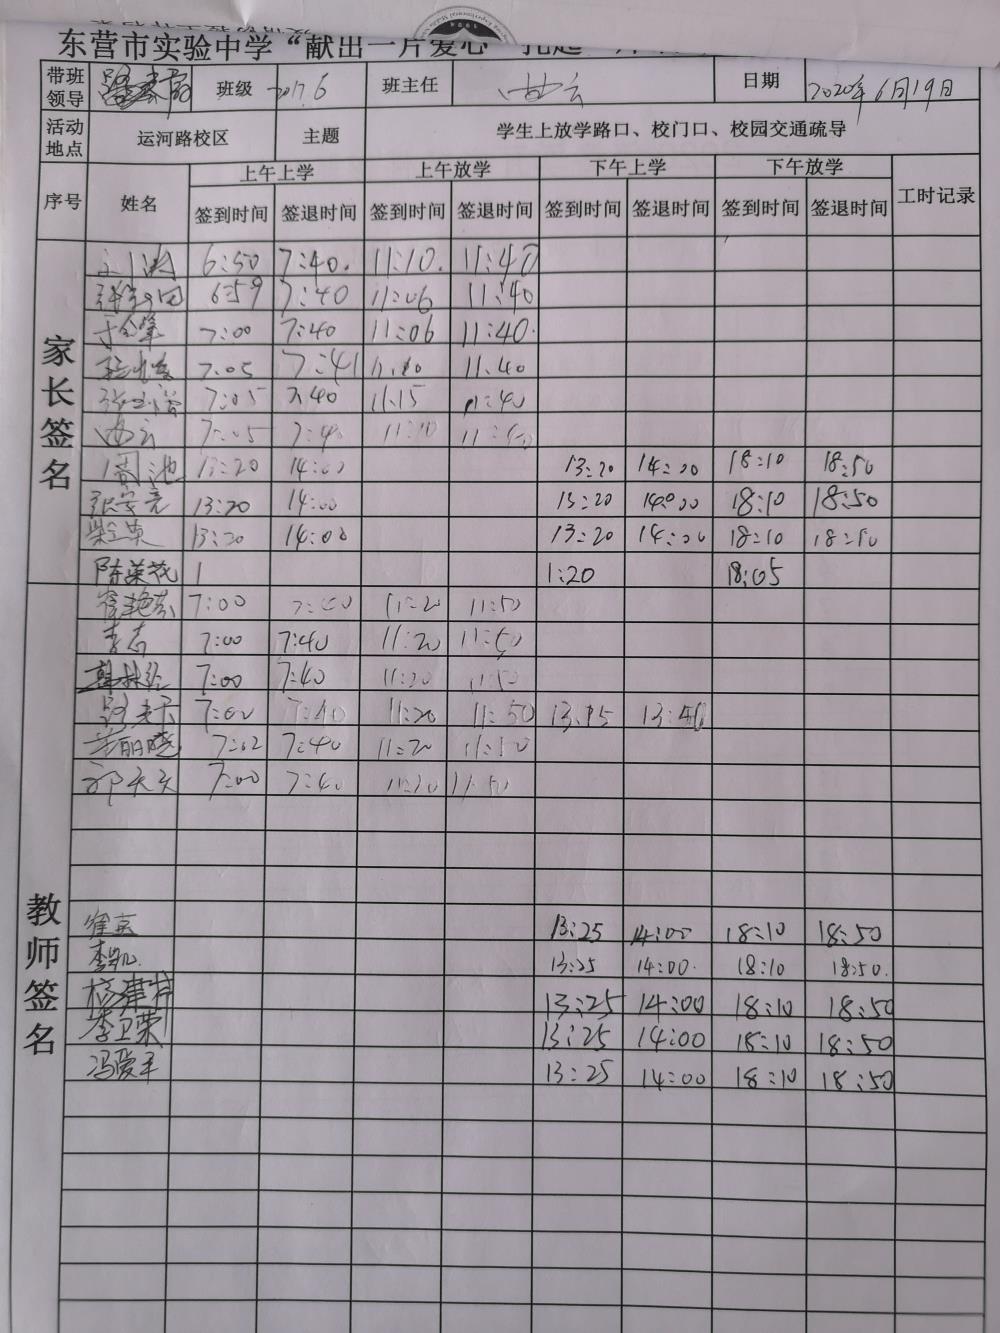 东营市实验中学“献出一片爱心
带班领导 班级 2017.6 班主任 日期 2020年6月19日
活动地点 运河路校区 主题 学生上放学路口、校门口、校园交通疏导
序号 姓名 上午上学 上午放学 下午上学 下午放学 工时记录
签到时间 签退时间 签到时间 签退时间 签到时间 签退时间 签到时间 签退时间
家长签名
6:50 7:40. 11:10. 11:40
6:59 7:40 11:06 11:40
7:00 7:40 11:06 11:40.
7:05 7:41 11:40
7:05 7:40 11:15 11:40
7:05 7:40 11:10 11:40
周池 13:20 14:00 13:20 14:00 18:10 18:50
张安亮 13:20 14:00 13:20 14:00 18:10 18:50
13:20 14:00 13:20 14:00 18:10 18:50
陈荣花 1 1:20 18:05
教师签名
7:00 11:20 11:50
李志 7:00 7:40 11:20 11:50
韩林 7:00 7:40 11:20 11:50
7:00 7:40 11:20 11:50 13:15
丽晓 7:02 7:40 11:20 11:50
郭天天 7:00 7:40 11:20 11:50
崔英 13:25 14:00 18:10 18:50
李凯 13:25 14:00. 18:10 18:50.
13:25 14:00 18:10 18:50
李卫荣 13:25 14:00 18:10 18:50
冯爱军 13:25 14:00 18:10 18:50